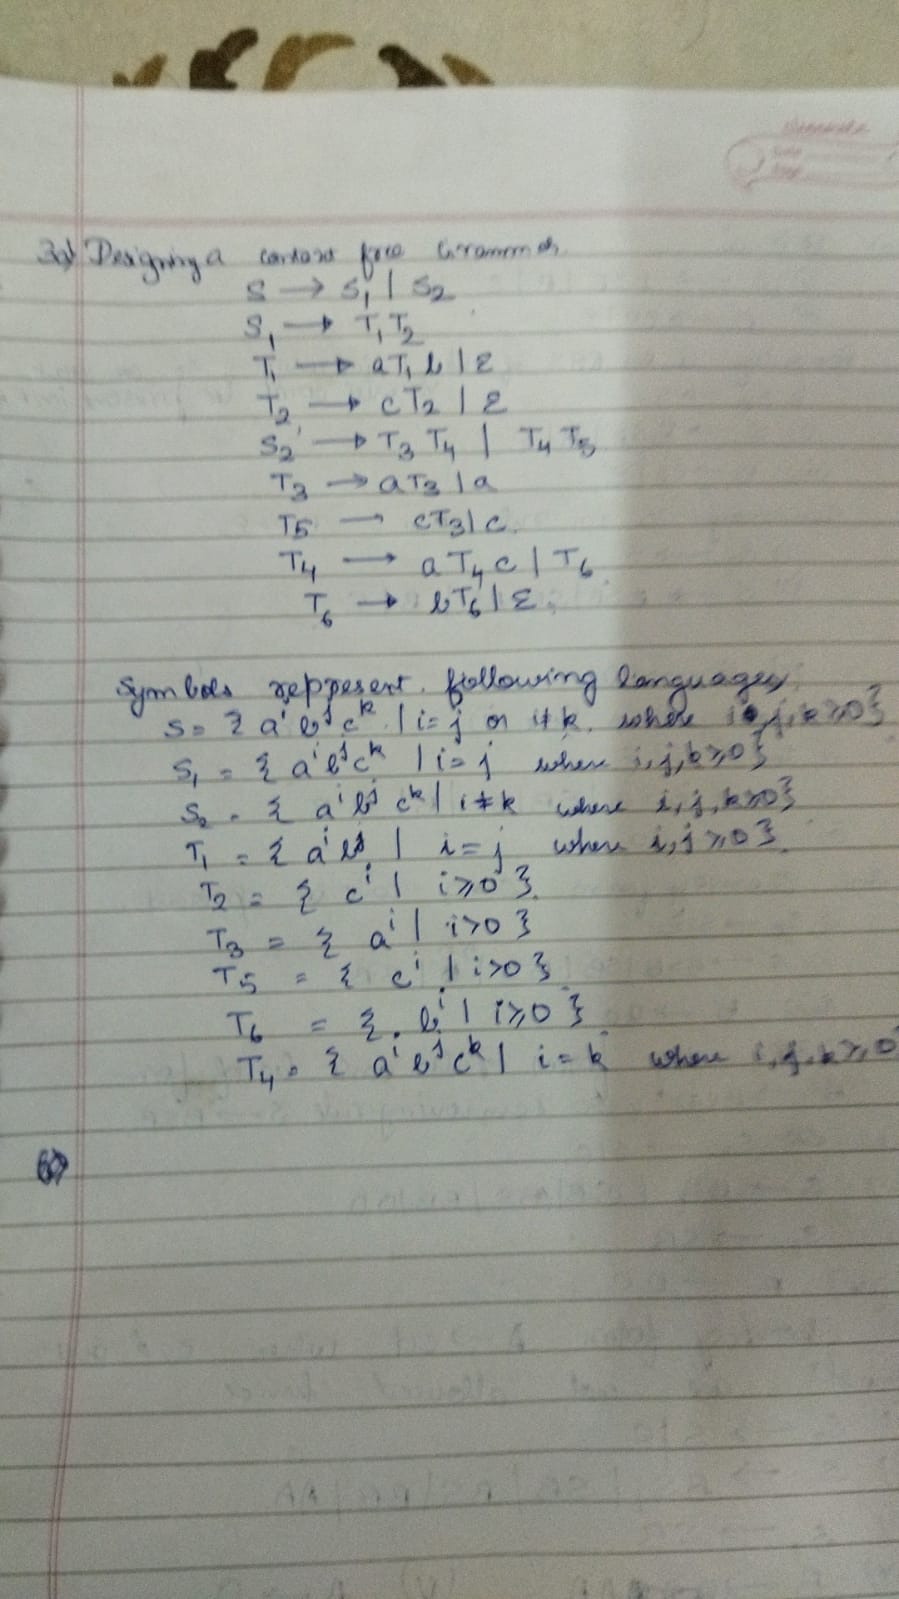 3a) Designing a context free Grammar.
S → S₁ | S₂
S₁ → T₁T₂
T₁ → aT₁b | ε
T₂ → cT₂ | ε
S₂ → T₃T₄ | T₄T₅
T₃ → aT₃ | a
T₅ → cT₃ | c.
T₄ → aT₄c | T₆
T₆ → bT₆ | ε.
Symbols represent following languages
S = { aⁱ bʲ cᵏ | i=j or i≠k where i,j,k≥0}
S₁ = { aⁱ bʲ cᵏ | i=j where i,j,k≥0}
S₂ = { aⁱ bʲ cᵏ | i≠k where i,j,k≥0}
T₁ = { aⁱ bʲ | i=j where i,j≥0}.
T₂ = { cⁱ | i≥0}.
T₃ = { aⁱ | i>0}
T₅ = { cⁱ | i>0}
T₆ = { bⁱ | i≥0}
T₄ = { aⁱ bʲ cᵏ | i=k where i,j,k≥0